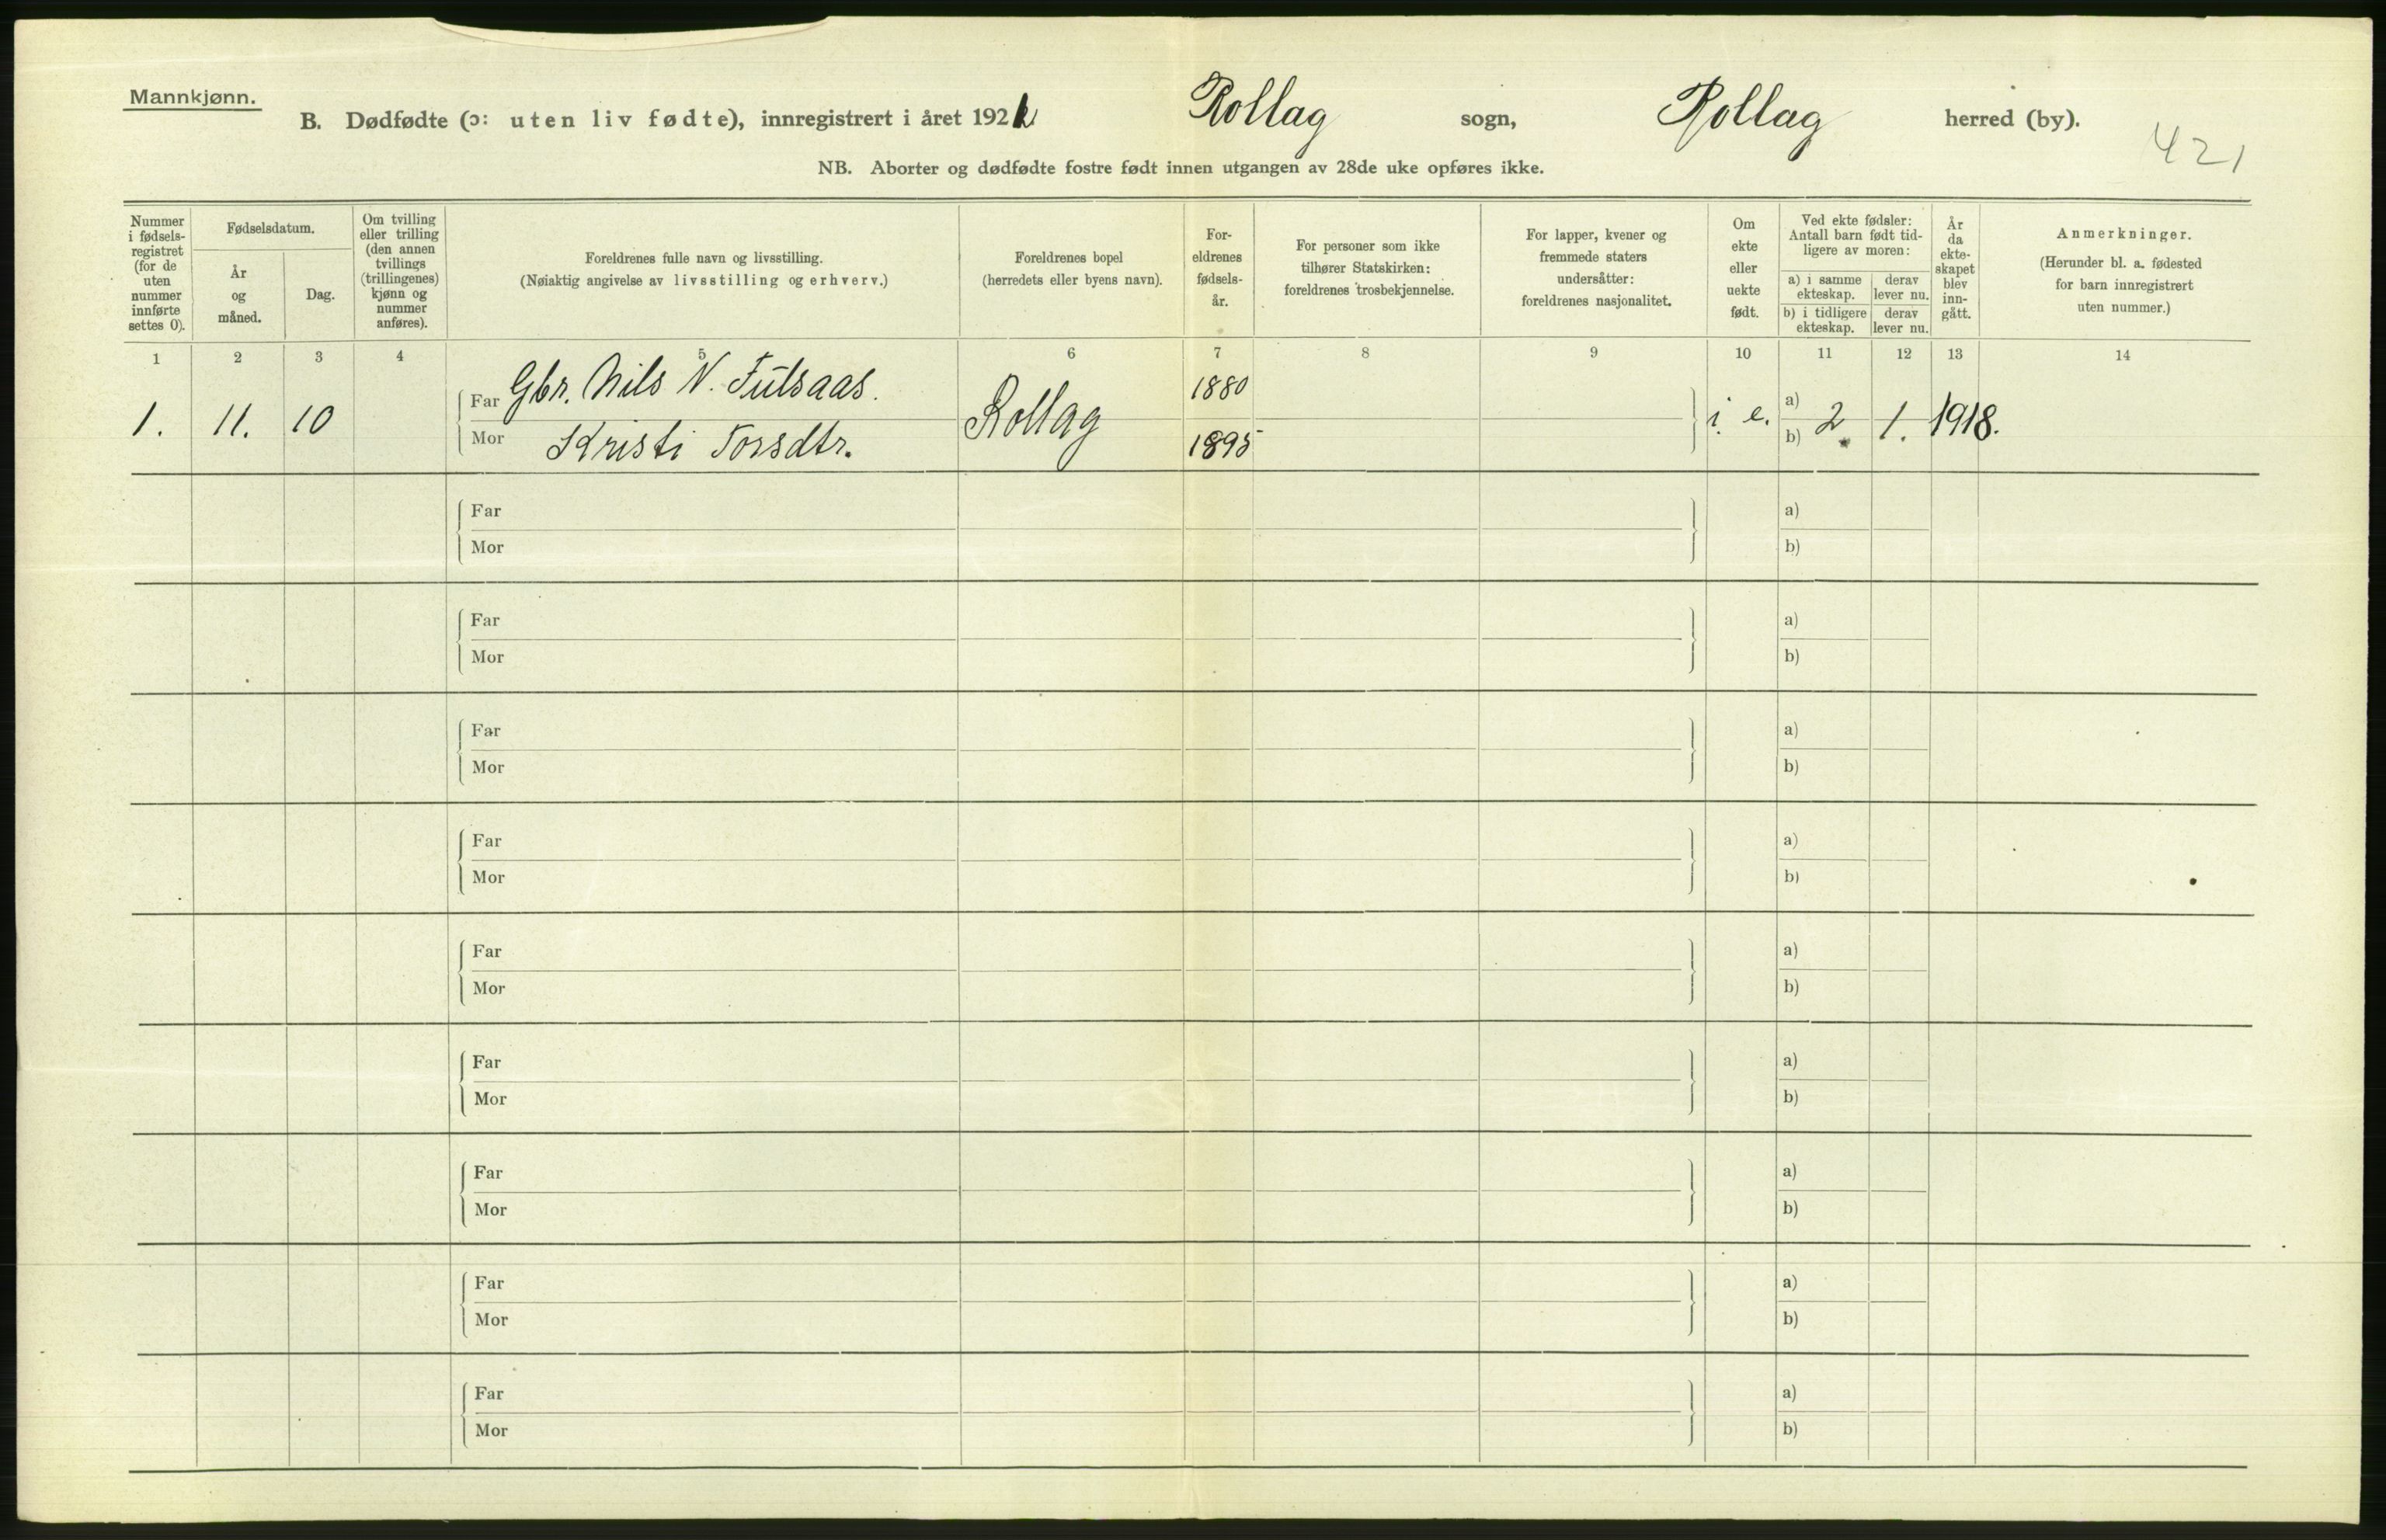 Mannkjønn.
B. Dødfødte (ɔ: uten liv fødte), innregistrert i året 192 Rollag sogn, Rollag herred (by).
421
NB. Aborter og dødfødte fostre født innen utgangen av 28de uke opføres ikke.
Nummer i fødsels-registret (for de uten nummer innførte settes 0).
Fødselsdatum.
År og måned.
Dag.
Om tvilling eller trilling (den annen tvillings (trillingenes) kjønn og nummer anføres).
Foreldrenes fulle navn og livsstilling.
(Nøiaktig angivelse av livsstilling og erhverv.)
Foreldrenes bopel
(herredets eller byens navn).
For-eldrenes fødsels-år.
For personer som ikke tilhører Statskirken: foreldrenes trosbekjennelse.
For lapper, kvener og fremmede staters undersåtter: foreldrenes nasjonalitet.
Om ekte eller uekte født.
Ved ekte fødsler: Antall barn født tid-ligere av moren:
a) i samme ekteskap.
derav lever nu.
b) i tidligere ekteskap.
derav lever nu.
År da ekte-skapet blev inn-gått.
Anmerkninger.
(Herunder bl. a. fødested for barn innregistrert uten nummer.)
1 2 3 4 5 6 7 8 9 10 11 12 13 14
1. 11. 10
Far Gbr. Nils N. Fulsaas.
Mor Kristi Torsdtr.
Rollag
1880
1895
i. e.
a)
b) 2. 1. 1918.
Far a)
Mor b)
Far a)
Mor b)
Far a)
Mor b)
Far a)
Mor b)
Far a)
Mor b)
Far a)
Mor b)
Far a)
Mor b)
Far a)
Mor b)
Far a)
Mor b)